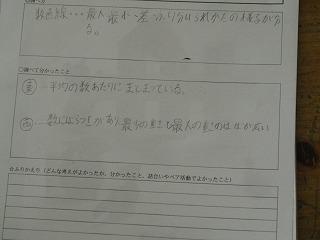 数直線・・・最大、最小、差、ちらばりかたの様子が分
る。
○調べて分かったこと
東…平均の数あたりにまとまっている。
西…数にばらつきがあり最小の重さも最大の重さのはばが広い
☆ふりかえり(どんな考えがよかったか、分かったこと、話合いやペア活動でよかったこと)